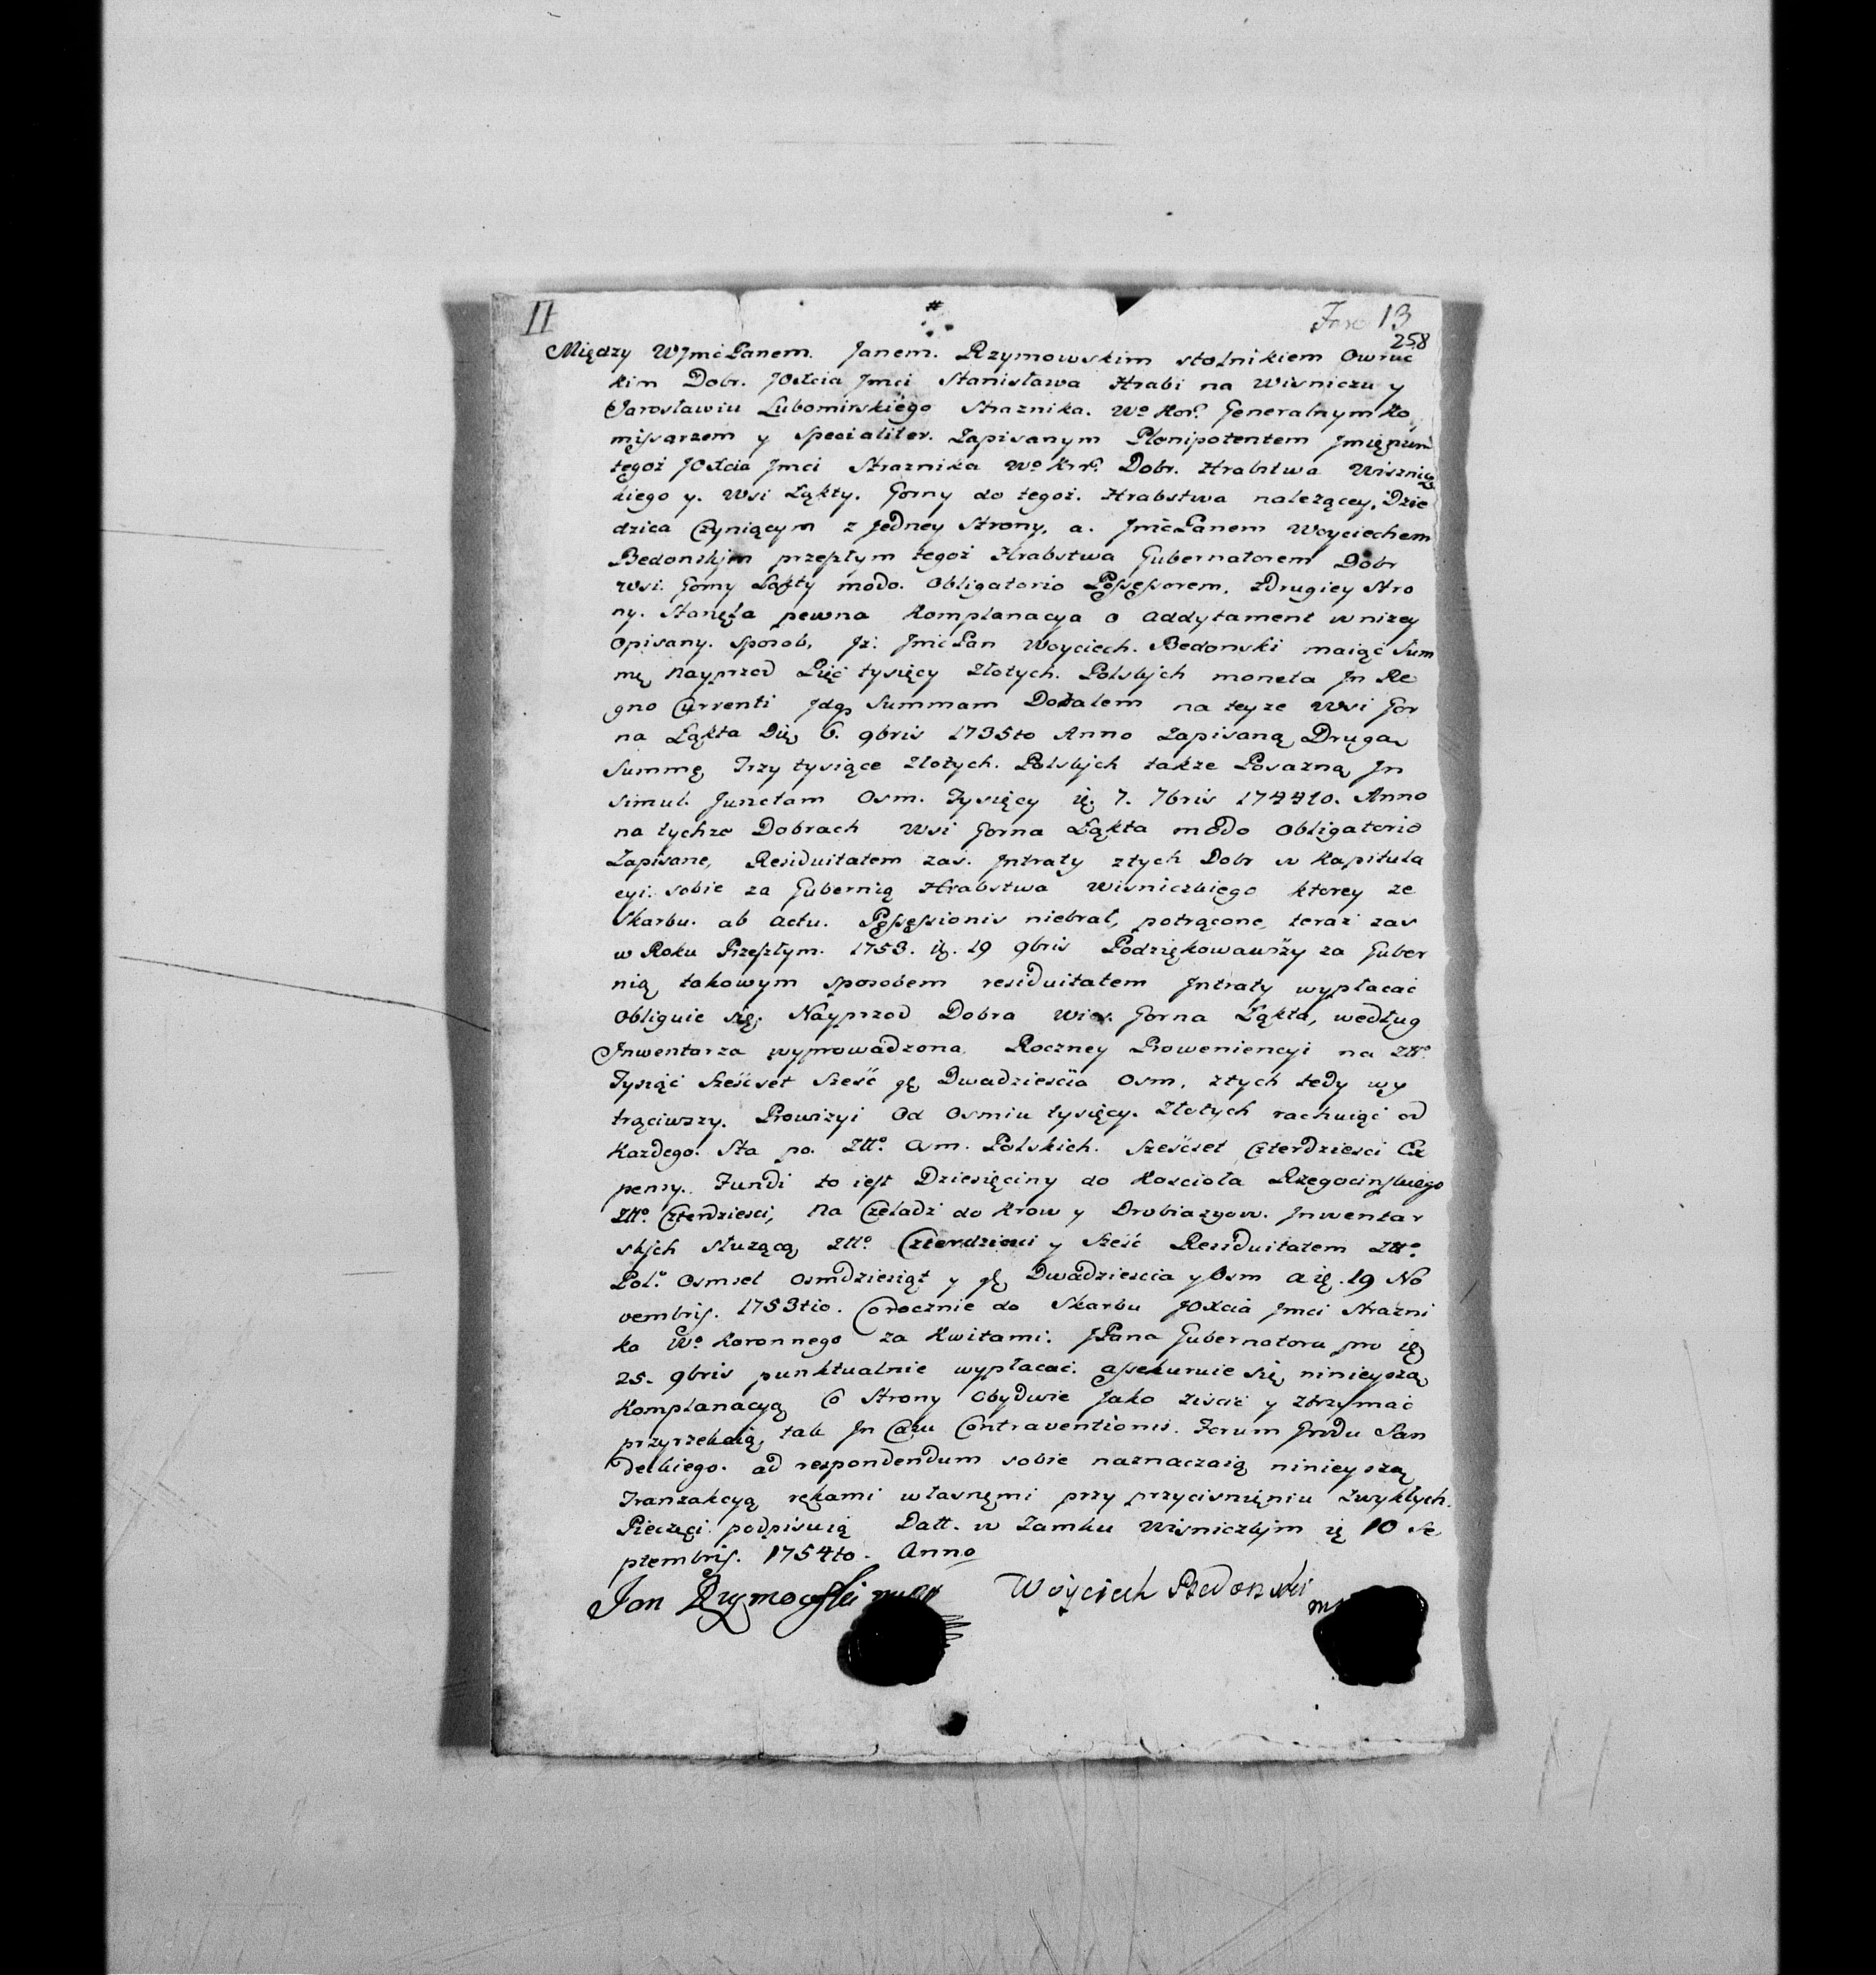 II
13
258
Między WJmcPanem. Janem. Rzymowskim stolnikiem Owruc
kim Dobr. JOXcia Jmci Stanisława Hrabi na Wisniczu y
Jarosławiu Lubomirskiego Straznika. Wo Kor. Generalnym Ko
missarzem y specialiter. Zapisanym Plenipotentem Jmięniem
tegoz JOXcia Jmci Straznika Wo Kor. Dobr. Hrabstwa Wisznic
kiego y. Wsi Łąkty. Gorny do tegoz. Hrabstwa nalezącey. Dzie
dzica Czyniącym z Jedney Strony, a. JmcPanem Woyciechem
Bedonskjm przeszłym tegoz Hrabstwa Gubernatorem Dobr
wsi. Gorny Łąkty modo. Obligatorio Possessorem, zdrugiey Stro
ny. Stanęła pewna Komplanacya o addytament w nizey
Opisany. sposob, Jz: JmcPan Woyciech. Bedonski maiąc Sum
mę Nayprzod Pięc tysięcy Złotych. Polskjch moneta Jn Re
gno Currenti Jdq Summam Dotalem na teyze Wsi Gor
na Łąkta Dię 6. 9bris 1735to Anno Zapisaną Drugą
Summę Trzy tysiące Złotych. Polskjch takze Posazną Jn
simul. Junctam Osm. Tysięcy ię. 7. 7bris 174410. Anno
na tychze Dobrach Wsi Gorna Łąkta modo Obligatorio
Zapisane, Residuitatem zas. Jntraty ztych Dobr w Kapitula
cyi. sobie za Gubernią Hrabstwa Wisniczkiego ktorey ze
Skarbu. ab actu. Possessionis niebrał, potrącone, teraz zas
w Roku Przeszłym. 1753. ię. 19 9bris Podziękowawszy za Guber
nią takowym sposobem residuitatem Jntraty wypłacac
Obliguie się. Nayprzod Dobra Wies. Gorna Łąkta, według
Jnwentarza wyprowadzona Roczney Proweniencyi na Złło
Tysiąc Szescset Szesc gę Dwadziescia Osm, ztych tedy wy
trąciwszy. Prowizyi Od Osmiu tysięcy. Złotych rachuiąc od
Kazdego. Sta po. Złło. Osm. Polskich. Szescset Czterdziesci Ex
pensy. Fundi to iest Dziesięciny do Koscioła Rzegocinskiego
Złło. Czterdziesci, Na Czeladz do Krow y Drobiazgow. Jnwentar
skjch słuzącą Złło. Czterdziesci y Szesc Residuitatem Złło.
Pol. Osmset Osmdziesiąt y gę Dwadziescia y Osm a ię. 19 No
vembris. 1753tio. Corocznie do Skarbu JOXcia Jmci Strazni
ka Wo. Koronnego za Kwitami. JPana Gubernatora pro ię
25. 9bris punktualnie wypłacac. assekuruie się ninieyszą
Komplanacyą Co Strony Obydwie Jako ziscic y ztrzymac
przyrzekaią, tak Jn Casu Contraventionis. Forum Grodu San
deckiego. ad respondendum sobie naznaczaią ninieyszą
Tranzakcyą rękami własnęmi przy przycisnięniu Zwykłych.
Pieczęci podpisuią Datt. w Zamku Wisniczkjm ię 10 Se
ptembris. 1754to. Anno
Jan Rzymowski mpp Woyciech Bedonski